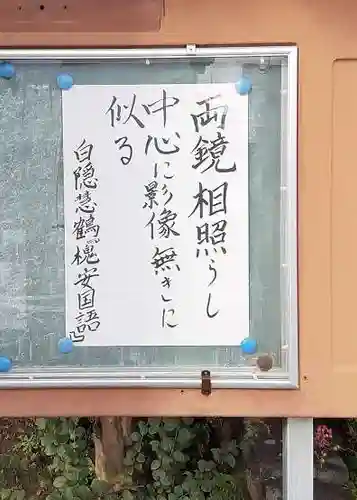 両鏡相照らし
中心に影像無きに
似る
白隠慧鶴『槐安国語』